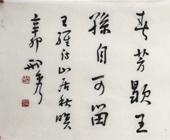 春芳歇王
孫自可留
王維詩山居秋暝
辛卯